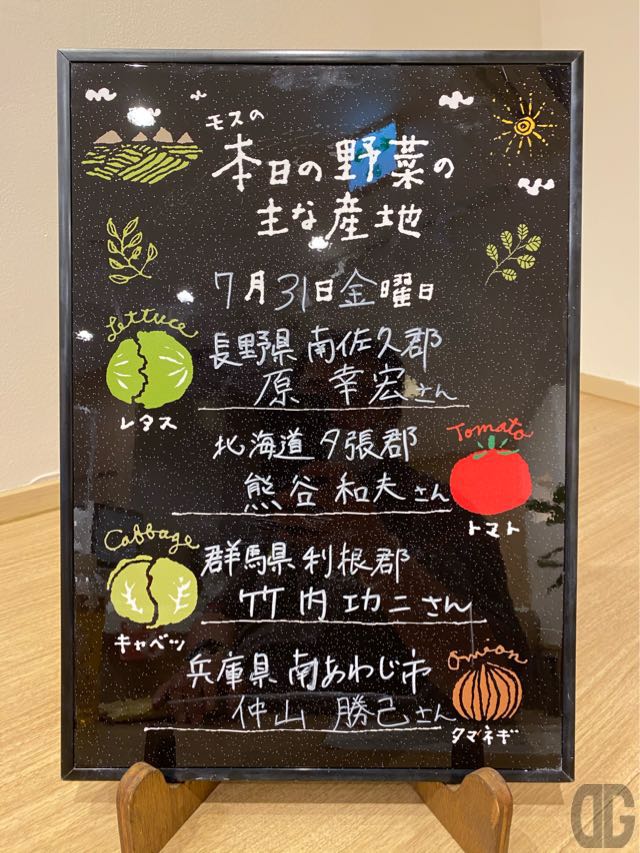 モスの
本日の野菜の
主な産地
7月31日金曜日
Lettuce
レタス
長野県 南佐久郡
原 幸宏さん
北海道 夕張郡
熊谷 和夫さん
Tomato
トマト
Cabbage
キャベツ
群馬県 利根郡
竹内 功二さん
兵庫県 南あわじ市
仲山 勝己さん
Onion
タマネギ
DG